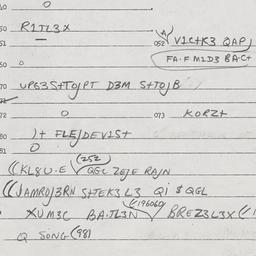 10 O
50 R1TL3X
51 052 V1C+K3 QAP)
50 O FA.F M1D3 BAC+
70 UPG3S+TOJPT D3M S+TOJB
72 O 073 KORZ+
80 )+ FLEJDEV1S+
81 O
((KL8U.E (252) QGL ZEJE RAJN
((JAMROJ3RN S+TEK3L3 Q1 $ QGL
XUM3C BA.TL3N ((196060) BREZ3L3X ((1
Q SONG (98)